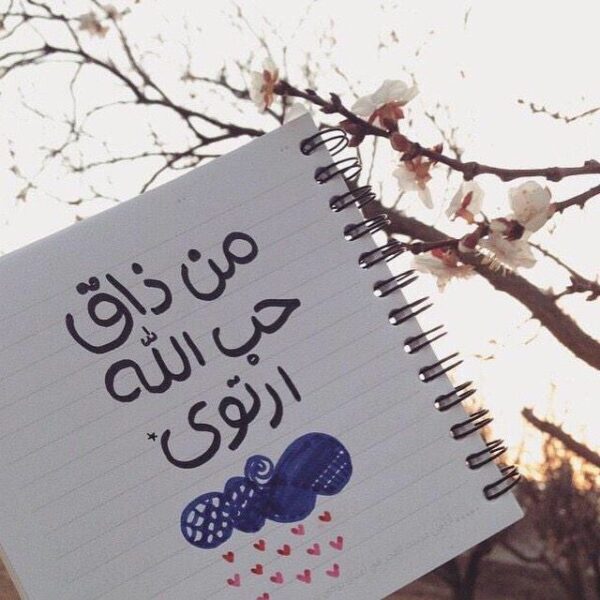 من ذاق
حب الله
ارتوى